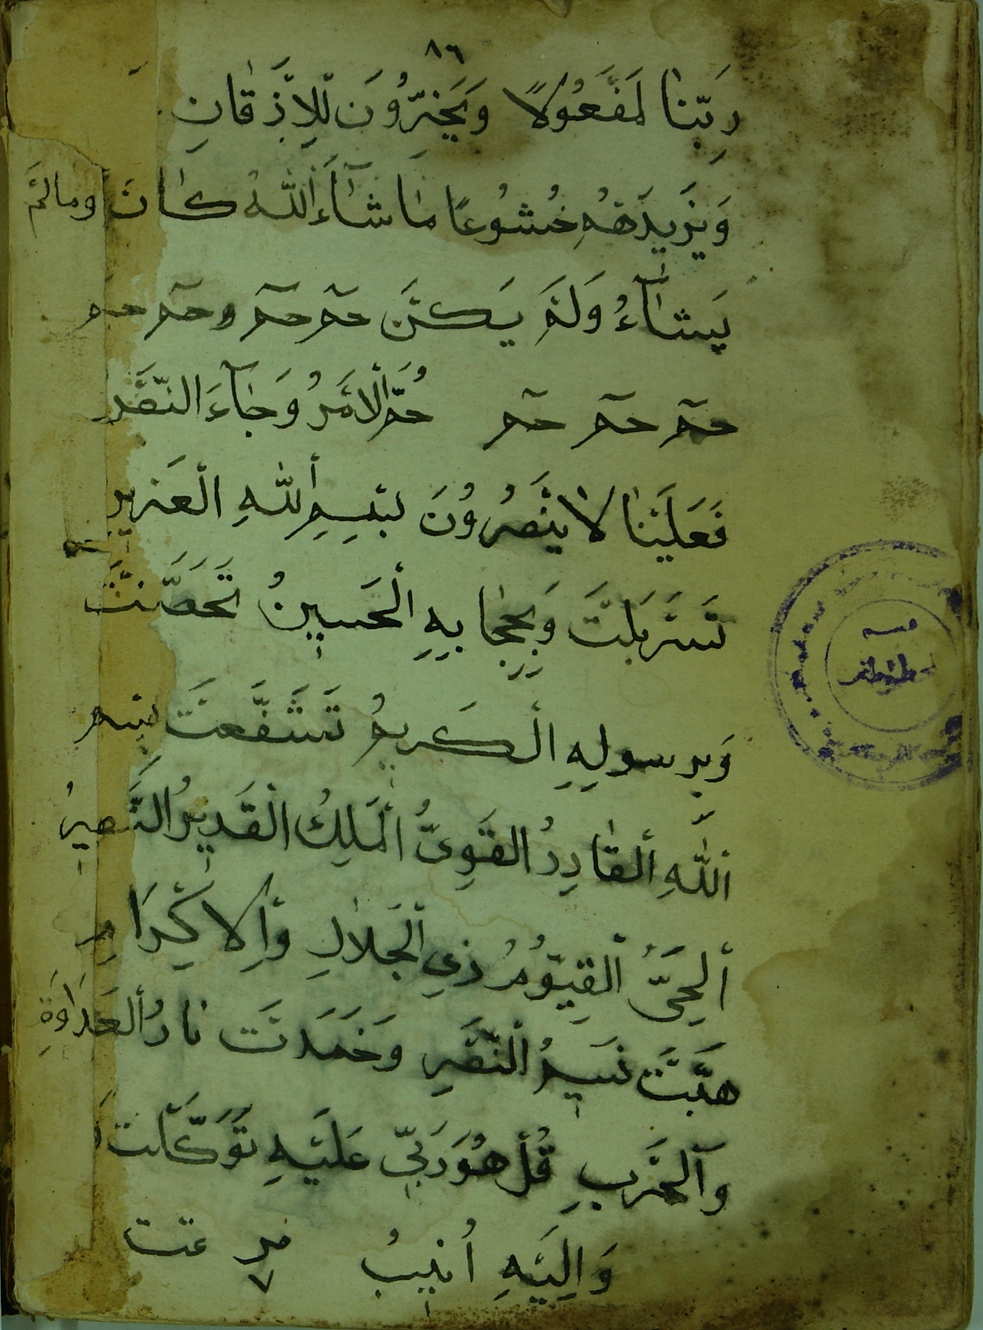 ٨٦
رَبِّنَا لَمَفْعُولًا وَيَخِرُّونَ لِلْاَذْقَانِ
وَيَزِيدُهُمْ خُشُوعًا مَا شَآءَ اللّٰهُ كَانَ وما لَمْ
يَشَآءُ وَلَمْ يَكُنْ حٓم حٓم حٓم وحٓم حٓم
حٓم حٓم حٓم حُمَّ الْاَمْرُ وَجَآءَ النَّصْرُ
فَعَلَيْنَا لَا يُنْصَرُونَ بِسْمِ اللّٰهِ الْعَزِيزِ
تَسَرْبَلْتُ وَبِحِجَابِهِ الْحَصِينُ تَحَصَّنْتُ
وَبِرسولِهِ الْكَرِيمُ تَشَفَّعْتُ بِسْمِ
اللّٰهِ الْقَادِرُ الْقَوِىُّ الْمَلِكُ الْقَدِيرُ النَّصِيرُ
اَلْحَىُّ الْقَيُّومُ ذِي الْجَلَالِ وَالْاِكْرَامِ
هَبَّتْ نَسِيمُ النَّصْرِ وَخَمَدَتْ نَارُ الْعَدَاوَةِ
وَالْحَرْبِ قُلْ هُوَ رَبِّي عَلَيْهِ تَوَكَّلْتُ
وَاِلَيْهِ اُنِيبُ تمت